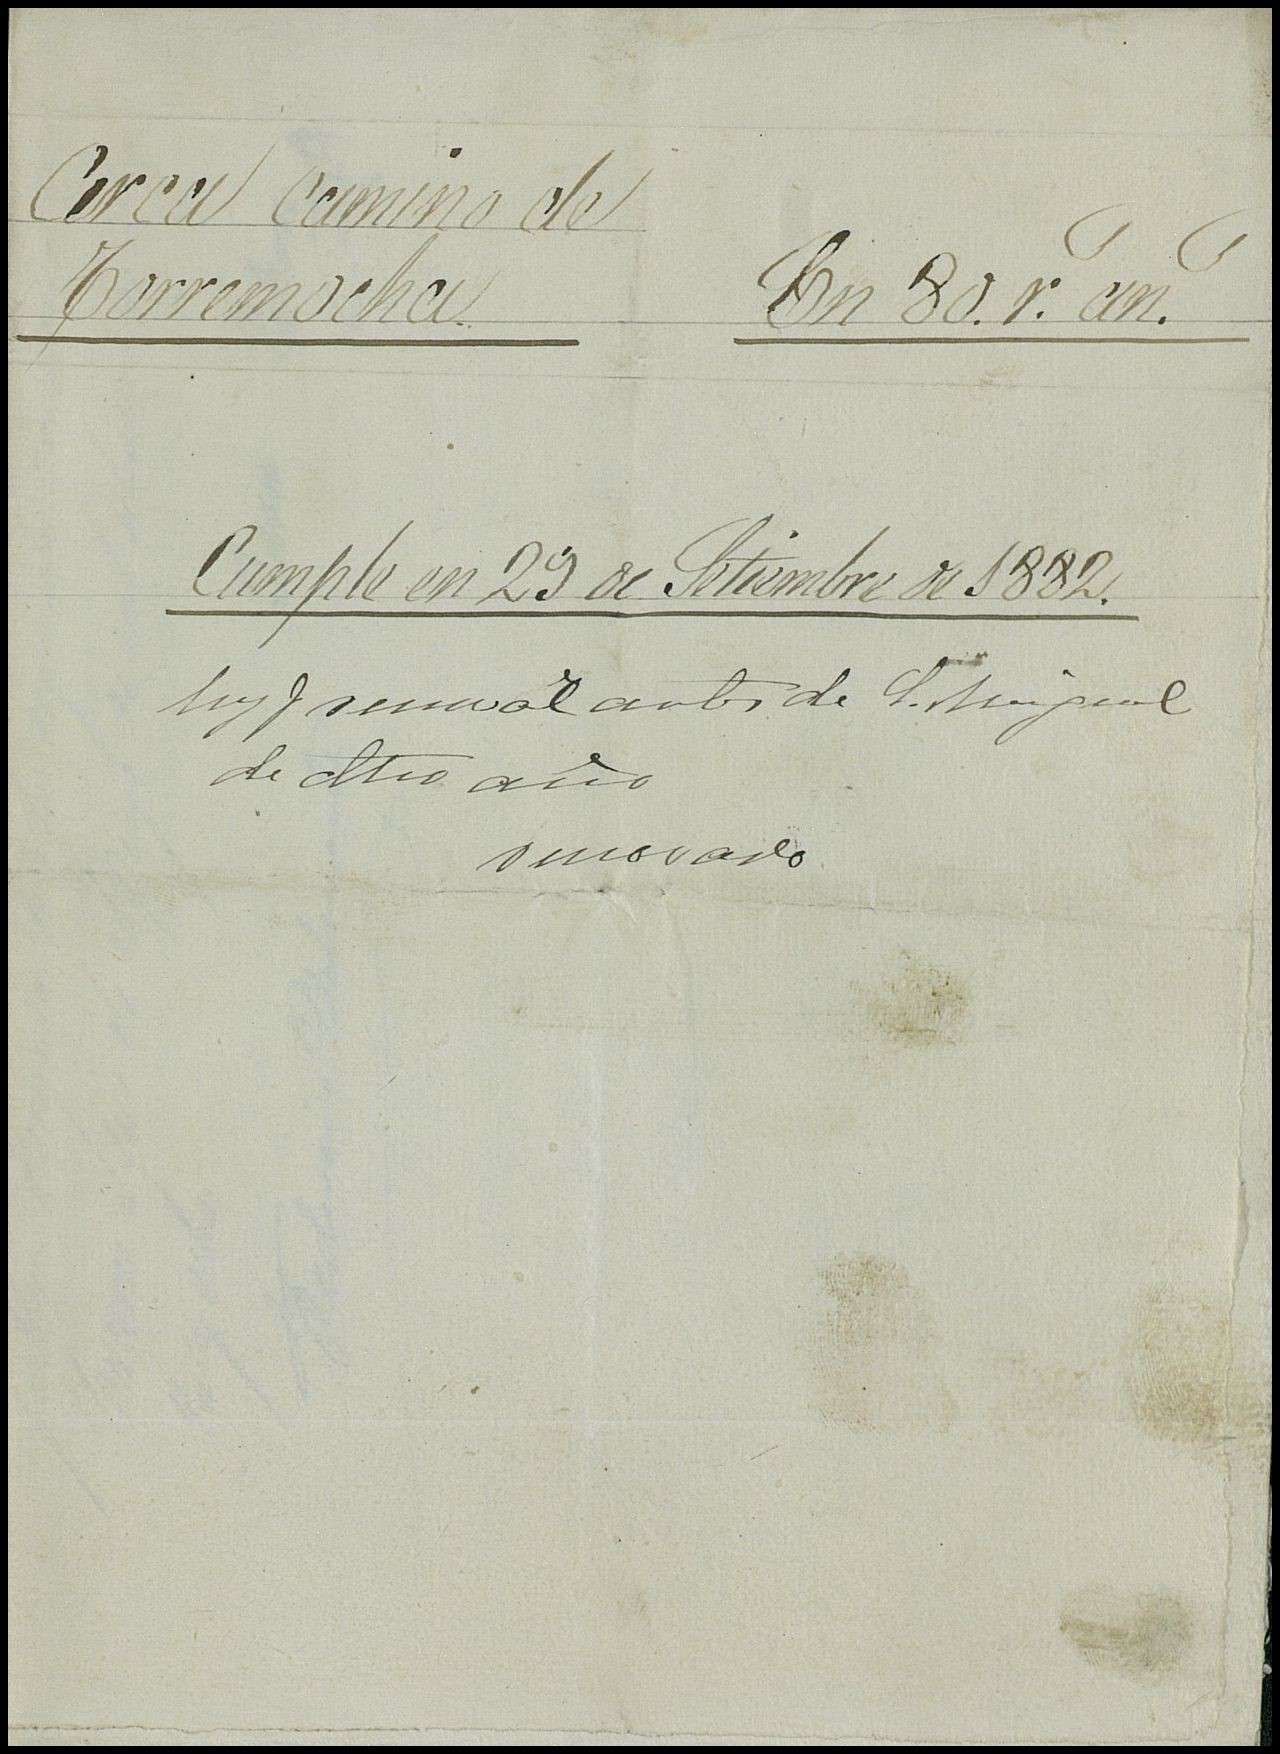 Cerca camino de
Torremocha.
En 80. r.ˢ an.ˢ
Cumple en 29 de Setiembre de 1882.
renovar antes de S. Miguel
de otro año
renovado